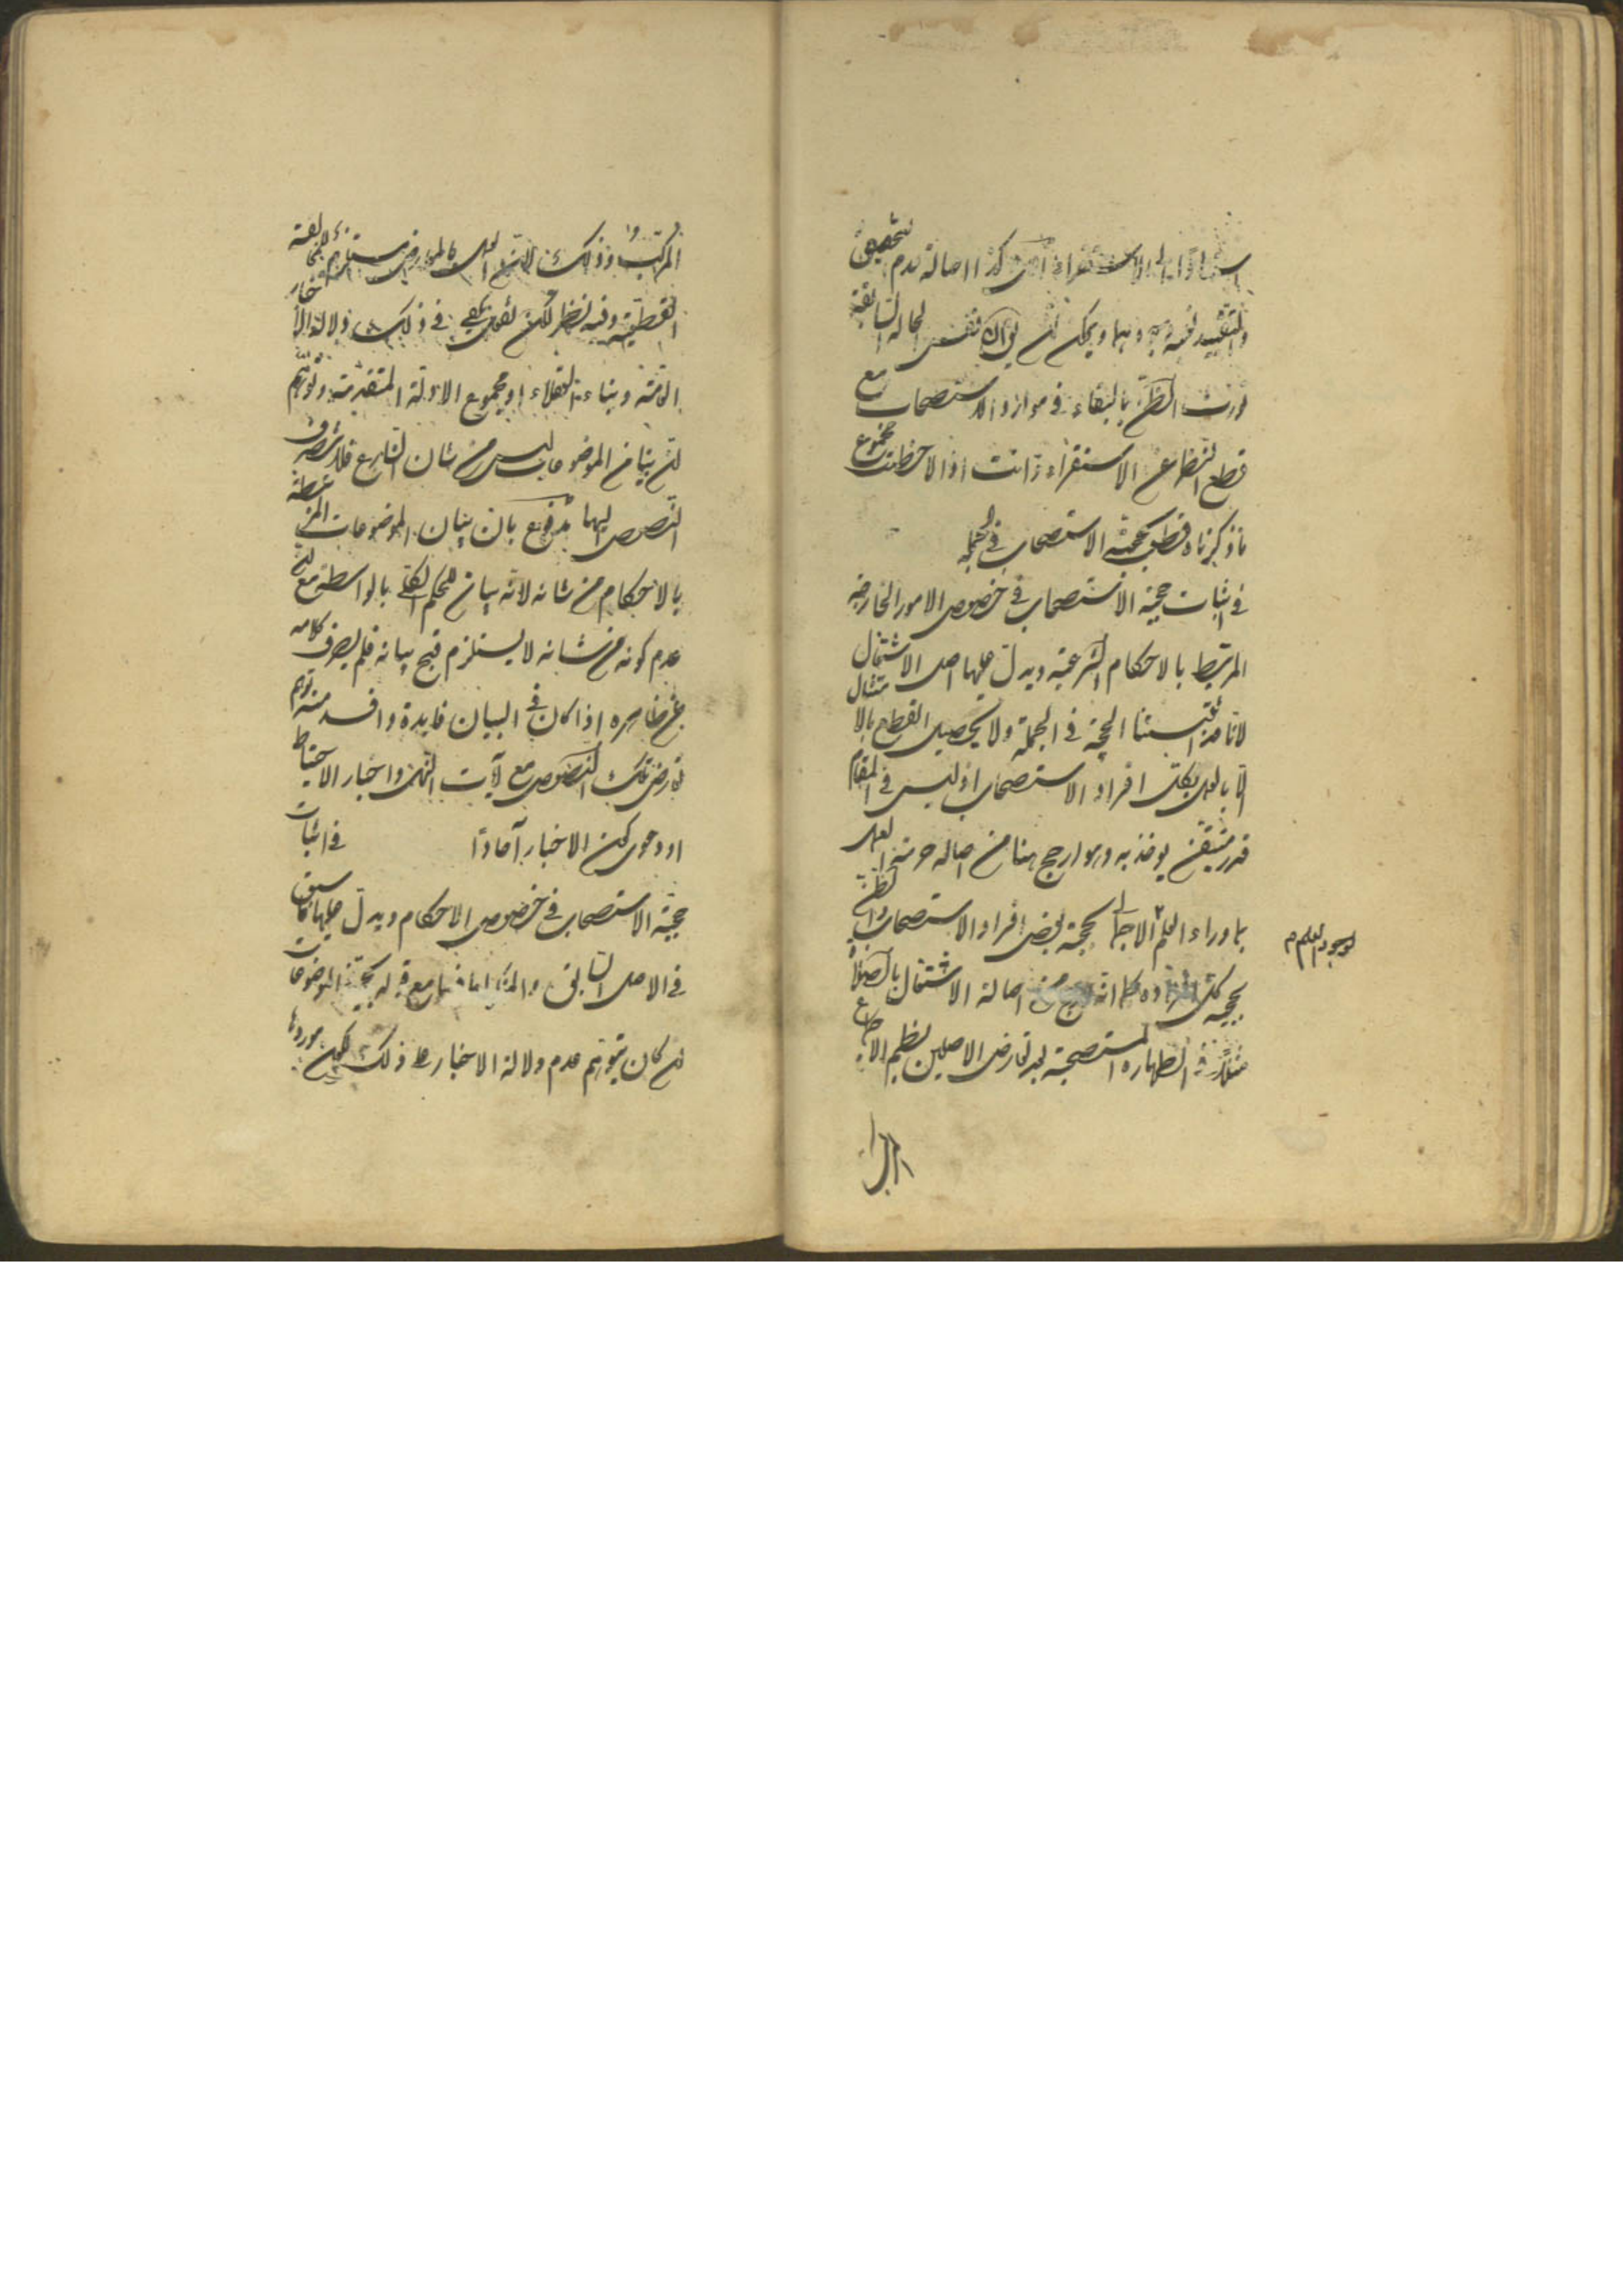 استنادا الى الاستقراء كذا اصالة عدم تحقيق
والتقييد ويمكن ان يق ان نفس الحالة السابقة
تورث الظن بالبقاء في موارد الاستصحاب مع
قطع النظر عن الاستقراء وانت اذا لاحظت مجموع
ما ذكرناه قطعت بحجية الاستصحاب في الجملة
في اثبات حجية الاستصحاب في خصوص الامور الخارجية
المرتبط بالاحكام الشرعية ويدل عليها اصل الاشتغال
لانا قد اثبتنا الحجية في الجملة ولا يحصل القطع بالامتثال
الا بالعمل بكل افراد الاستصحاب اذ ليس في المقام
قدر متيقن يوخذ به وهو ارجح هنا من اصالة حرمة العمل
بما وراء العلم لوجود العلم الاجمالي بحجية بعض افراد الاستصحاب والظن
بحجية كل افراده كما انه ارجح من اصالة الاشتغال بالصلوة
مثلا في الطهارة المستصحبة بعد تعارض الاصلين بظهر الاجماع
المركب وذلك لان العمل بالمعارض مستلزم للمخالفة
القطعية وفيه نظر لكن يكفي في ذلك دلالة الاخبار
العامة وبناء العقلاء او مجموع الادلة المتقدمة وتوهم
ان بيان الموضوعات ليس من شان الشارع فلا تنصرف
النصوص اليها مدفوع بان بيان الموضوعات المرتبطة
بالاحكام من شانه لانه بيان للحكم الكلي بالواسطة مع ان
عدم كونه من شانه لا يستلزم قبح بيانه فلم يصرف كلامه
عن ظاهره اذا كان في البيان فايدة وافسد منه توهم
تعارض تلك النصوص مع آيات النهي واخبار الاحتياط
او دعوى كون الاخبار آحادا في اثبات
حجية الاستصحاب في خصوص الاحكام ويدل عليها ما سبق
في الاصل السابق والمنكر لها مع قوله بحجيته في الموضوعات
ان كان يتوهم عدم دلالة الاخبار على ذلك لكون موردها